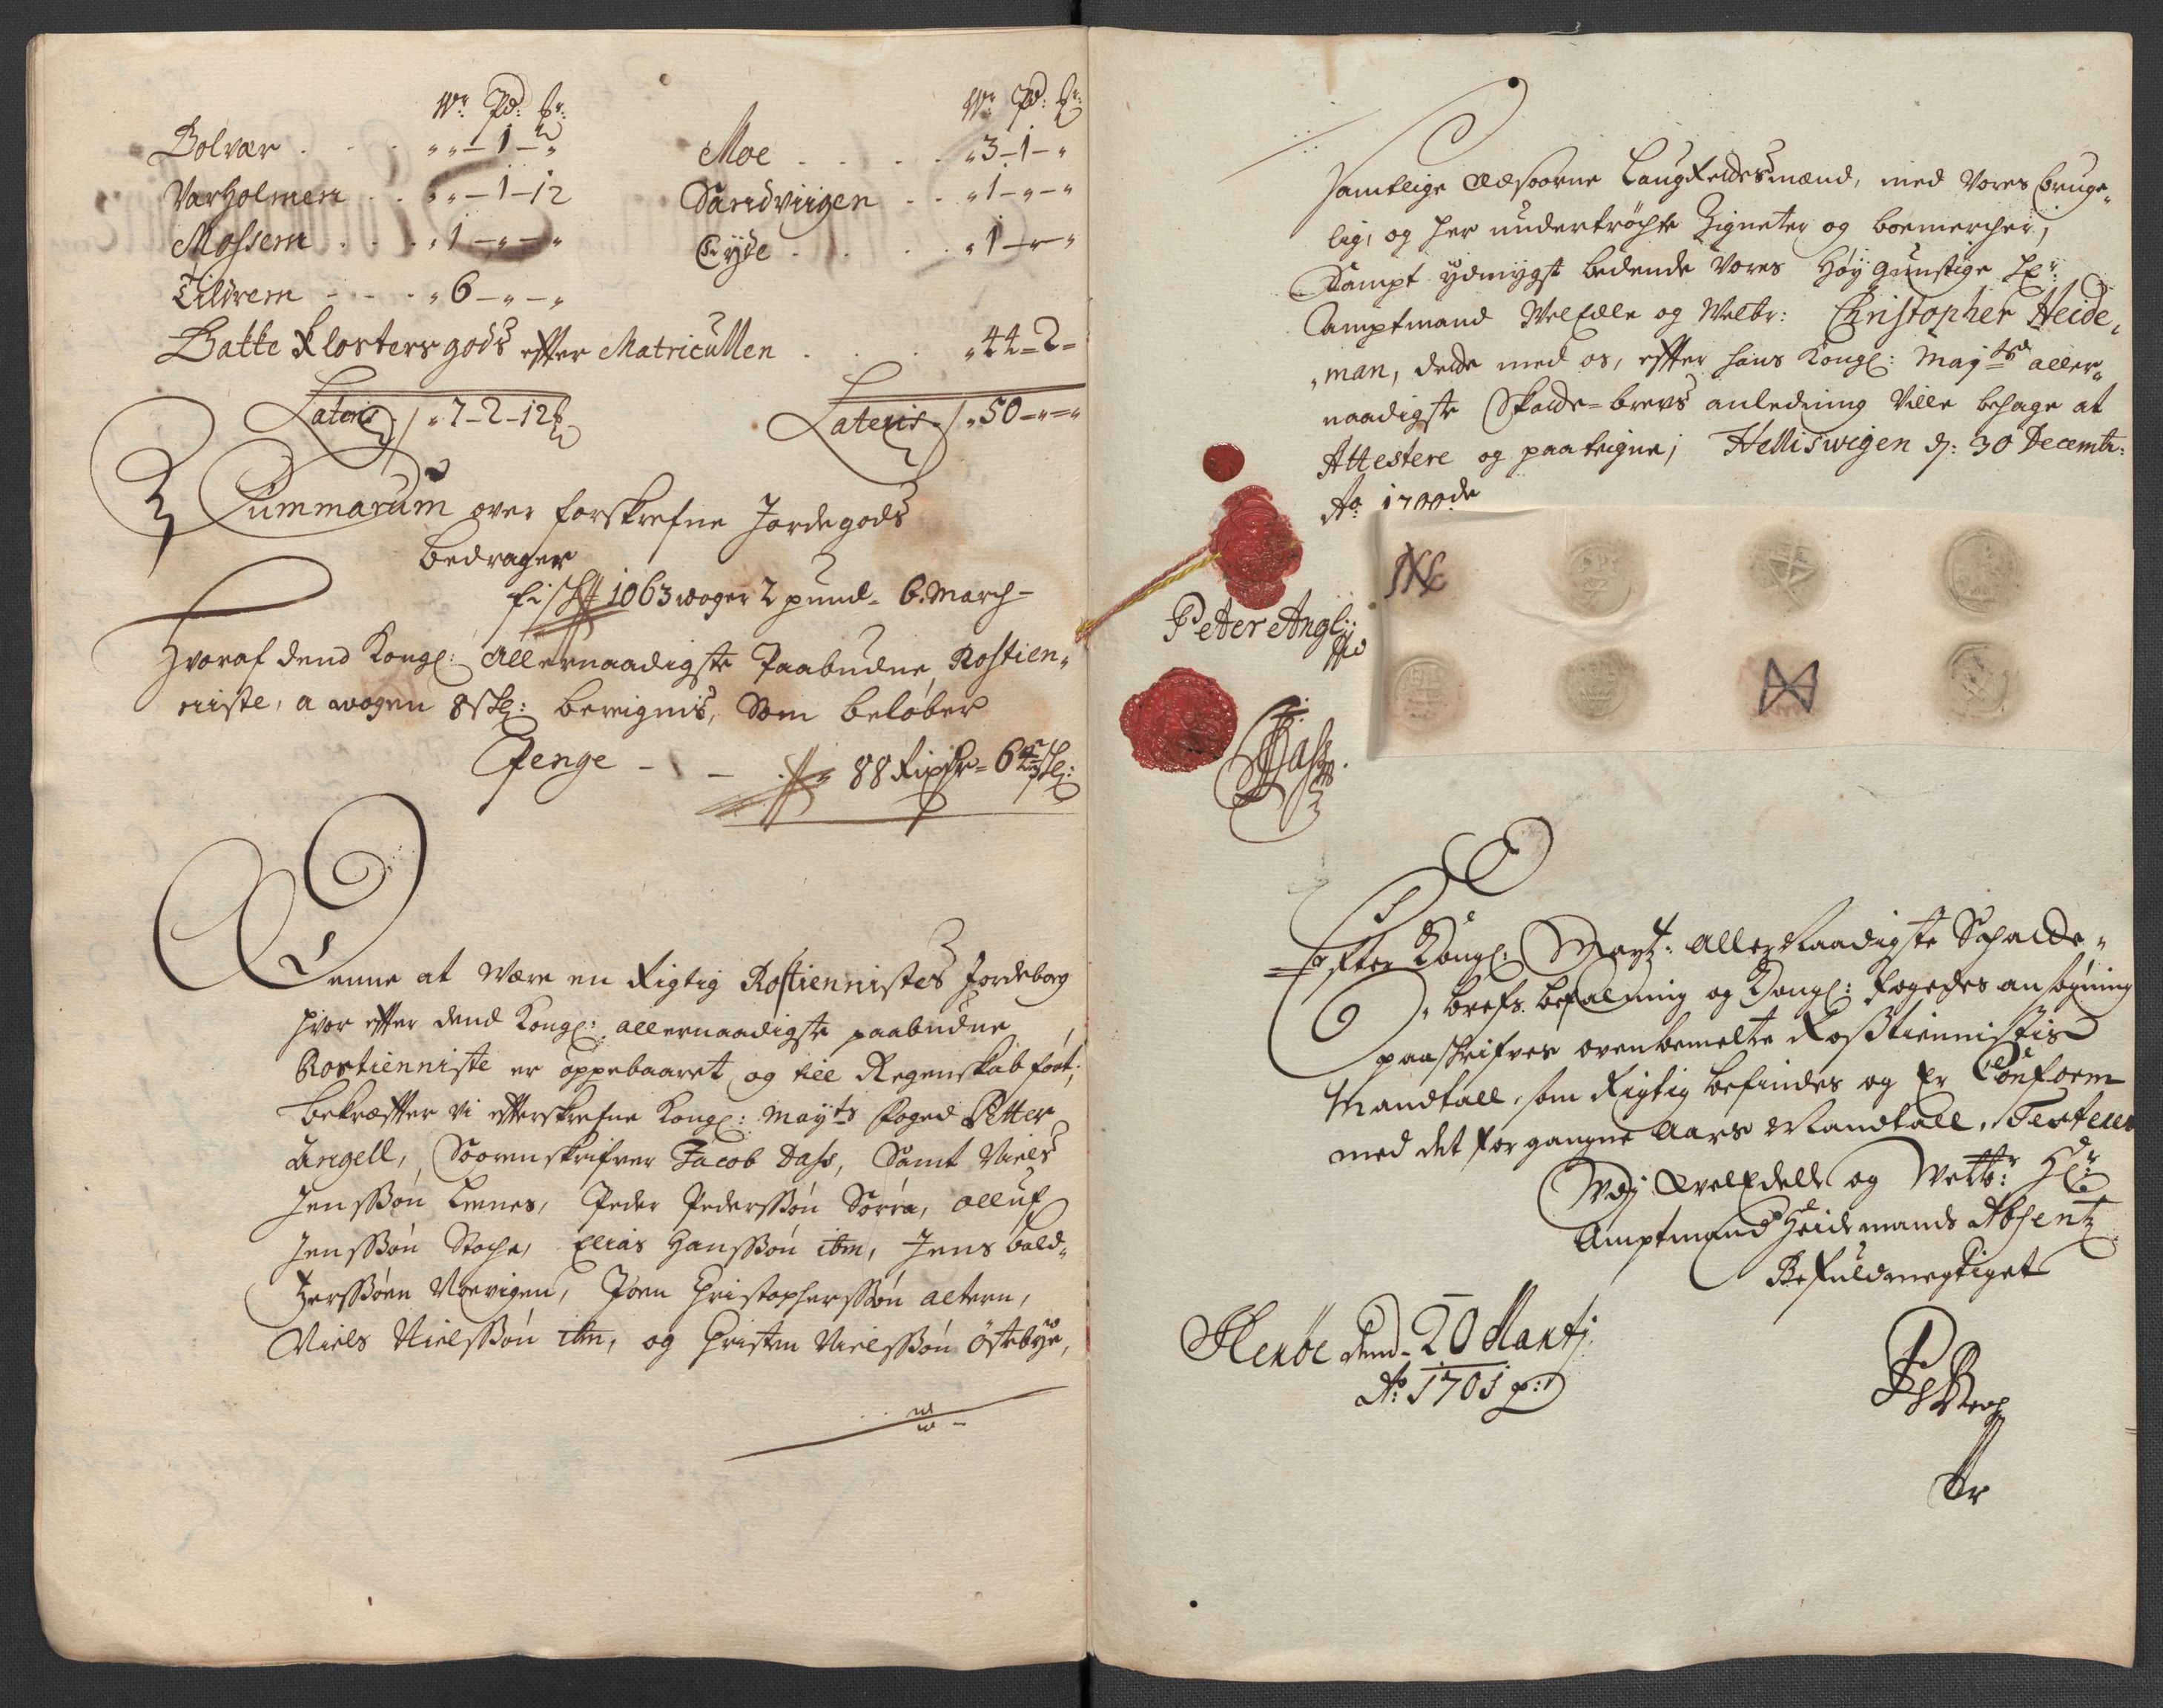 Wr Pd: Mr:
Bolvær . . . „ „ – 1 – „
Varholmen . . „ „ – 1 – 12
Mossem . . . „ 1 – „ – „
Tilrem - - - „ 6 – „ – „
Wr Pd: Mr:
Moe . . . . „ 3 – 1 – „
Sandviigen . . „ 1 – „ – „
Eyde . . . . „ 1 – „ – „
Batte Klosters gods effter Matricullen . . . „ 44 = 2 =
Lateris / „ 7 – 2 – 12
Lateris / „ 50 – „ = „
Summarum over forskrefne Jordegods
bedrager
fisch 1063 woger 2 pund - 6. March -
Hvoraf dend Kongl: Allernaadigste Paabudne Rostien„
niste, a wogen 8 sk: bereignis, Som beløber
Penge - - - 88 Rixdr = 6 sk:
Denne at være en Rigtig Rostiennistes Jordebog
hvor effter dend Kongl: allernaadigste paabudne
Rostienniste er oppebaaret og till Regenskab ført;
bekræffter vi effterskrefne Kongl: Mayts foged Petter
Angell, Soorenskrifver Jacob Dass, Samt Niels
Jenssøn Lennes, Peder Pederssøn Sørra, Olluf
Jenssøn Stoche, Elias Hanssøn ibm, Jens bald„
Zerssøen Norvigen, Joen Christopherssøn Altern,
Niels Nielssøn ibm, og Christen Nielssøn Østebye,
Samtlige Æedsoorne Laugrettesmænd, med Vores bruge„
lig, og her undertrøchte Zigneter og boemercher,
Sampt ydmygst bedende Vores Høy gunstige Hr:
Amptmand WelEdle og Welbr: Christopher Heide„
„man, dette med os, effter hans Kongl: Mayts aller„
naadigste Skatte-brevs anledning Ville behage at
Attestere og paateigne; Helliswigen d: 30 Decembr:
Ao 1700de
Peter Angell
Dass
Effter Kongl: Mayts: Allernaadigste Schatte„
„brefs befalning og Kongl: fogedes ansøgning
paaschrifves ovenbemelte Rosstiennistis
Mandtall, som Rigtig befindes og Er Conform
med det forgangne Aars Mandtall, Testerer
Wdj WelEdelle og Welbr: Hr:
Amptmand Heidemands Absentz
Befuldmegtiget
Alenbe dend 20 Martj
Ao 1701